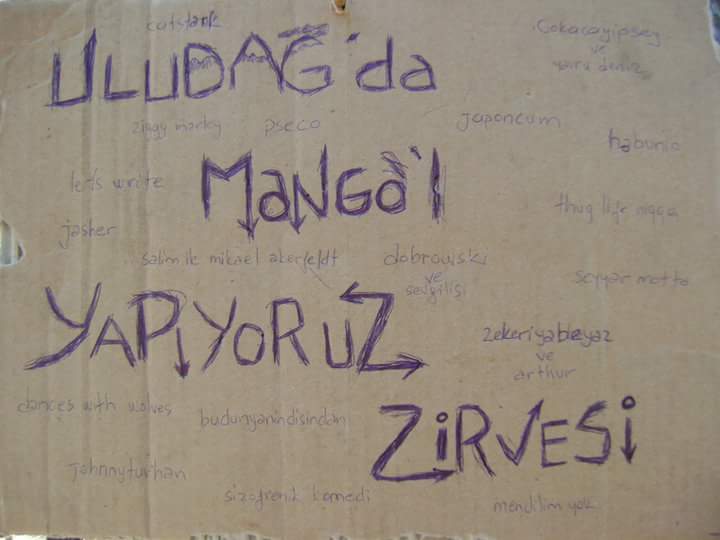 catstank
ULUDAĞ'da
cokacayipsey
ve
deniz
ziggy marley
pseco
japoncum
habunio
let's write
MaNGa'I
thug life nigga
jasher
salim ile mikael akerfeldt
dobrowski
ve
sevgilisi
seyyar motto
YAPIYORUZ
zekeriyabeyaz
ve
arthur
dances with wolves
budunyanindisindan
ZiRVESi
Johnnyturhan
sizofrenik komedi
mendilim yok